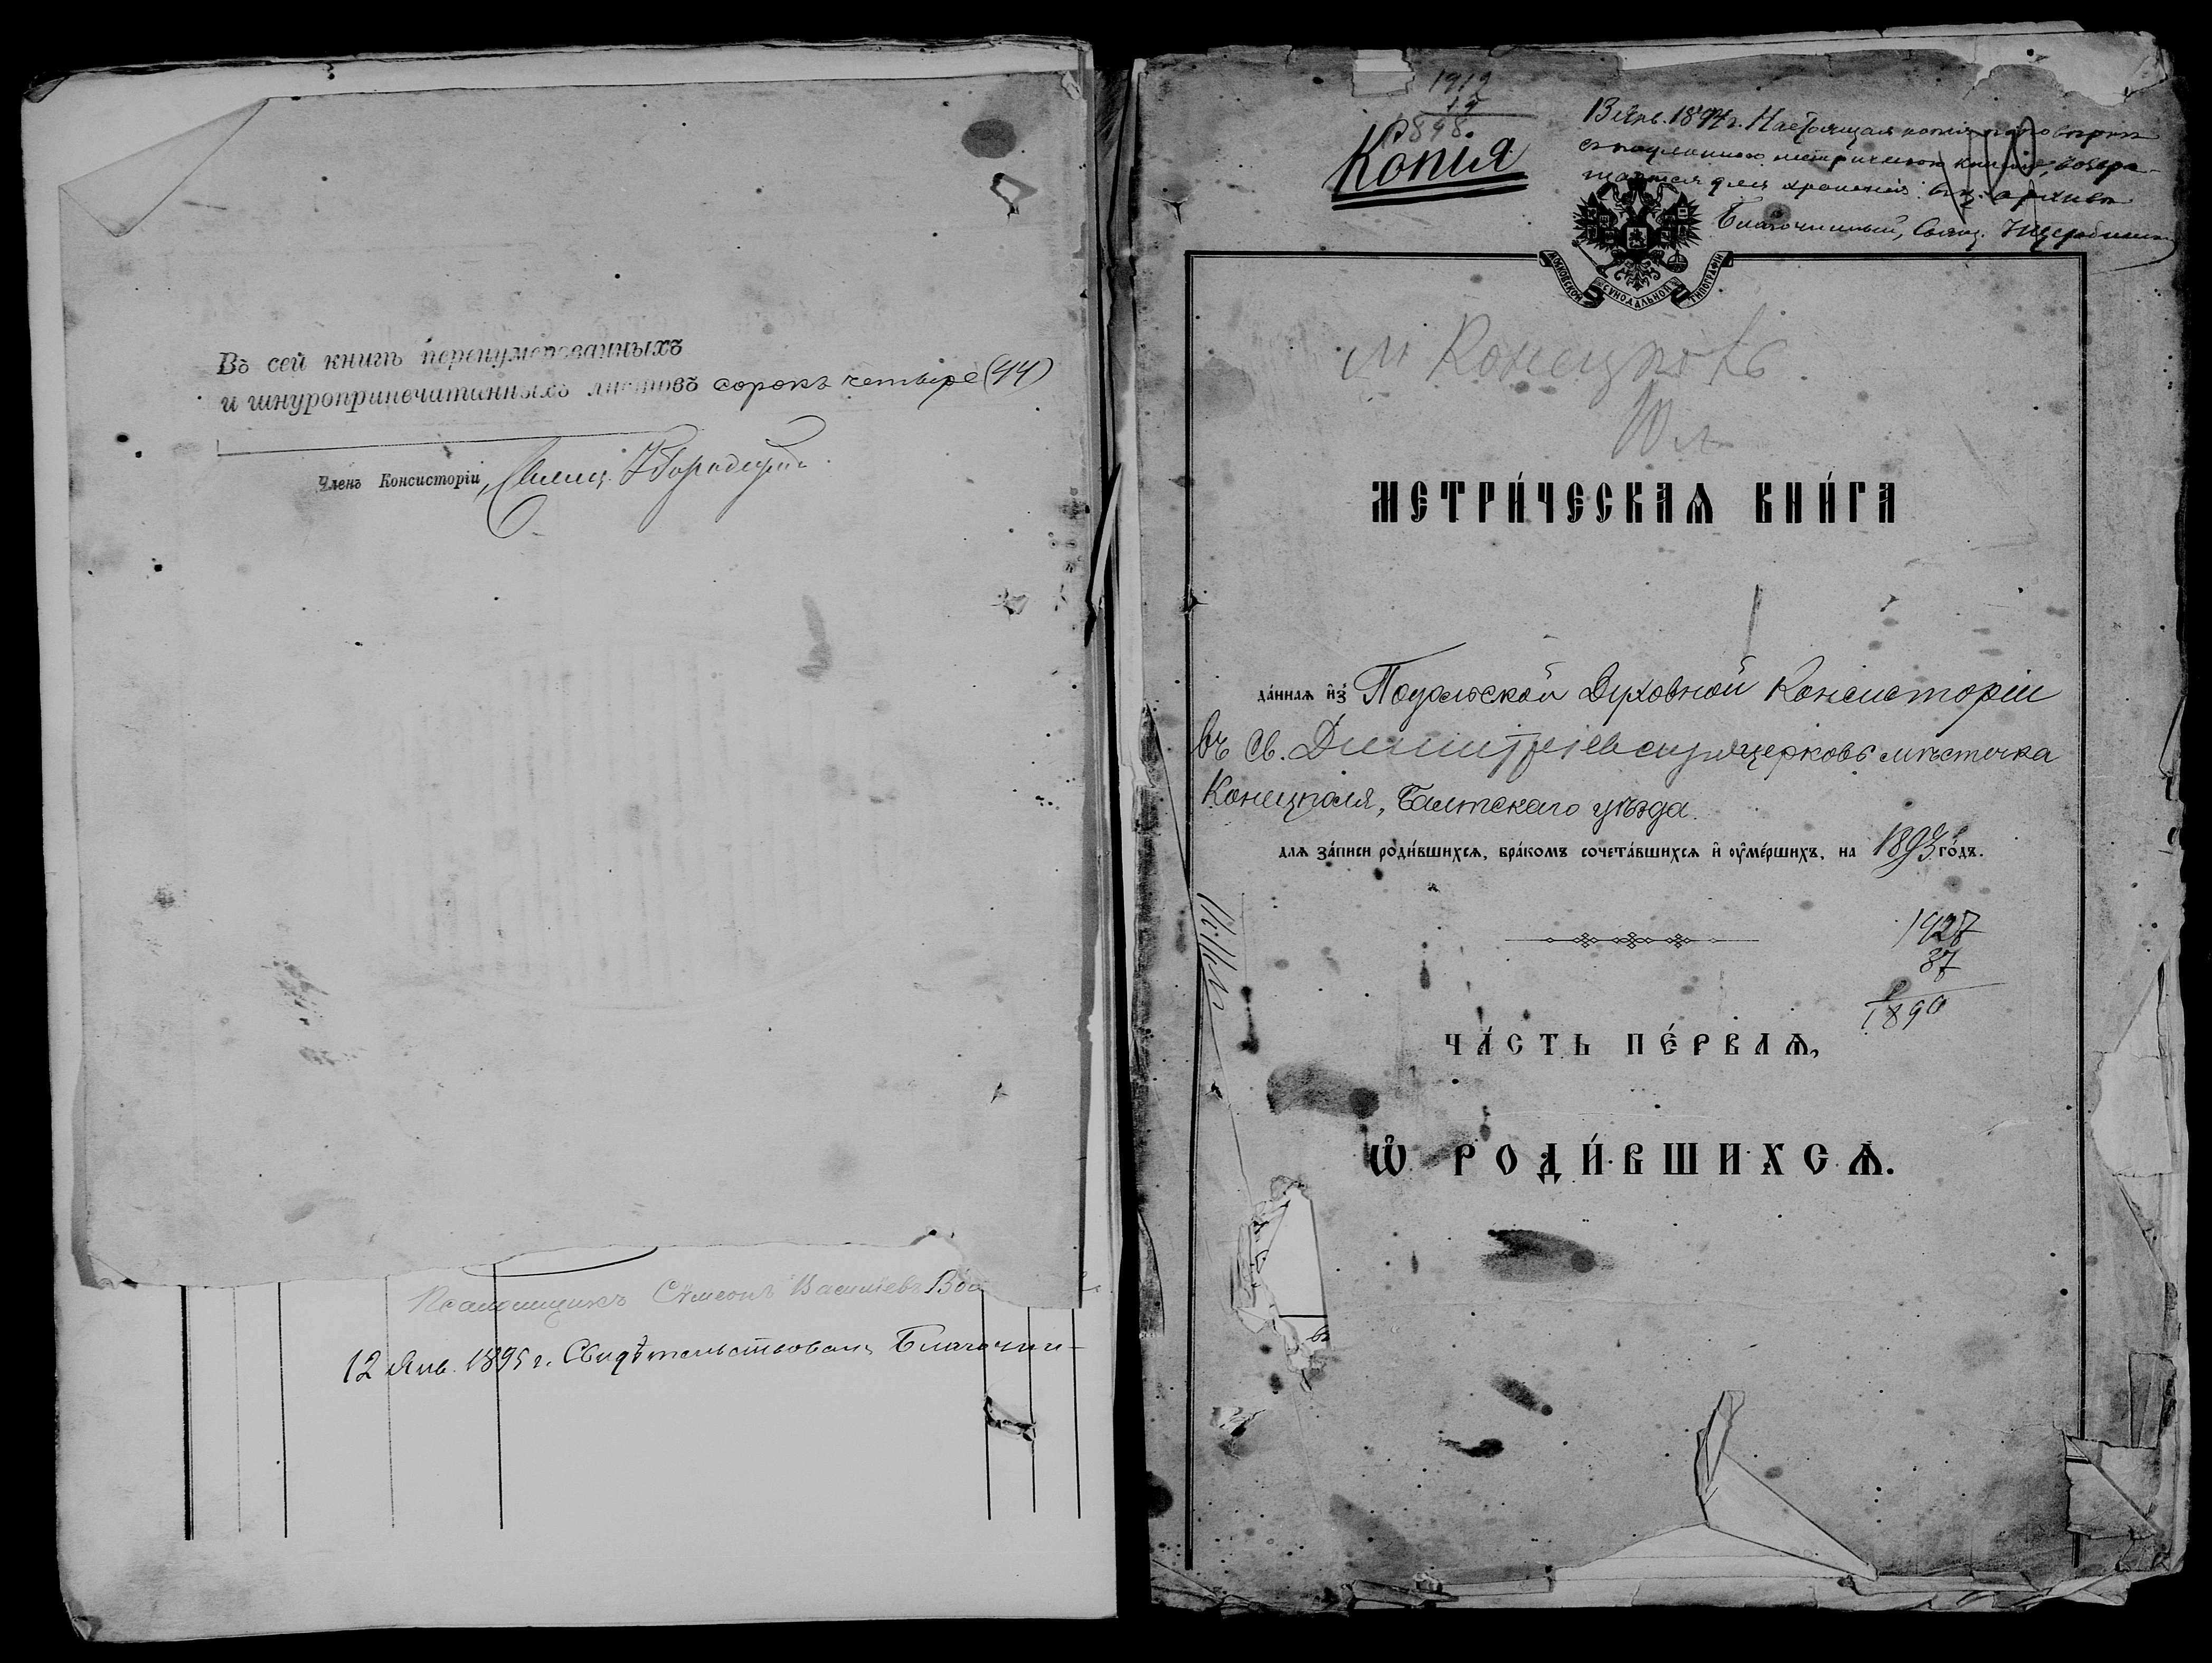 Въ сей книгѣ перенумерованныхъ
и шнуроприпечатанныхъ листовъ сорокъ четыре (44)
Членъ Консисторіи, Свящ.
Псаломщикъ Сѵмеонъ Васильевъ
12 Янв. 1895 г. Свидѣтельствовалъ Благочин-
1912
19
1898
Копия
13 Янв. 1894 г. Настоящая копія по
съ подлинною метрическою книгою, возвра-
щается для хранения въ ц. архивѣ
Благочинный, Свящ.
МОСКОВСКОЙ СѴНОДАЛЬНОЙ ТИПОГРАФІИ
м Конецполь
МЕТРИ́ЧЕСКАѦ КНИ́ГА
да́ннаѧ и҆з̾ Подольской Духовной Консисторіи
въ Св. Димитріевскую церковь мѣстечка
Конецполя, Балтскаго уѣзда.
длѧ за́писи роди́вшихсѧ, бра́комъ сочета́вшихсѧ и҆ оу҆ме́ршихъ, на 1893 го́дъ.
1927
37
1890
ЧА́СТЬ ПЕ́РВАѦ,
Ѡ҆ РОДИ́ВШИХСѦ.